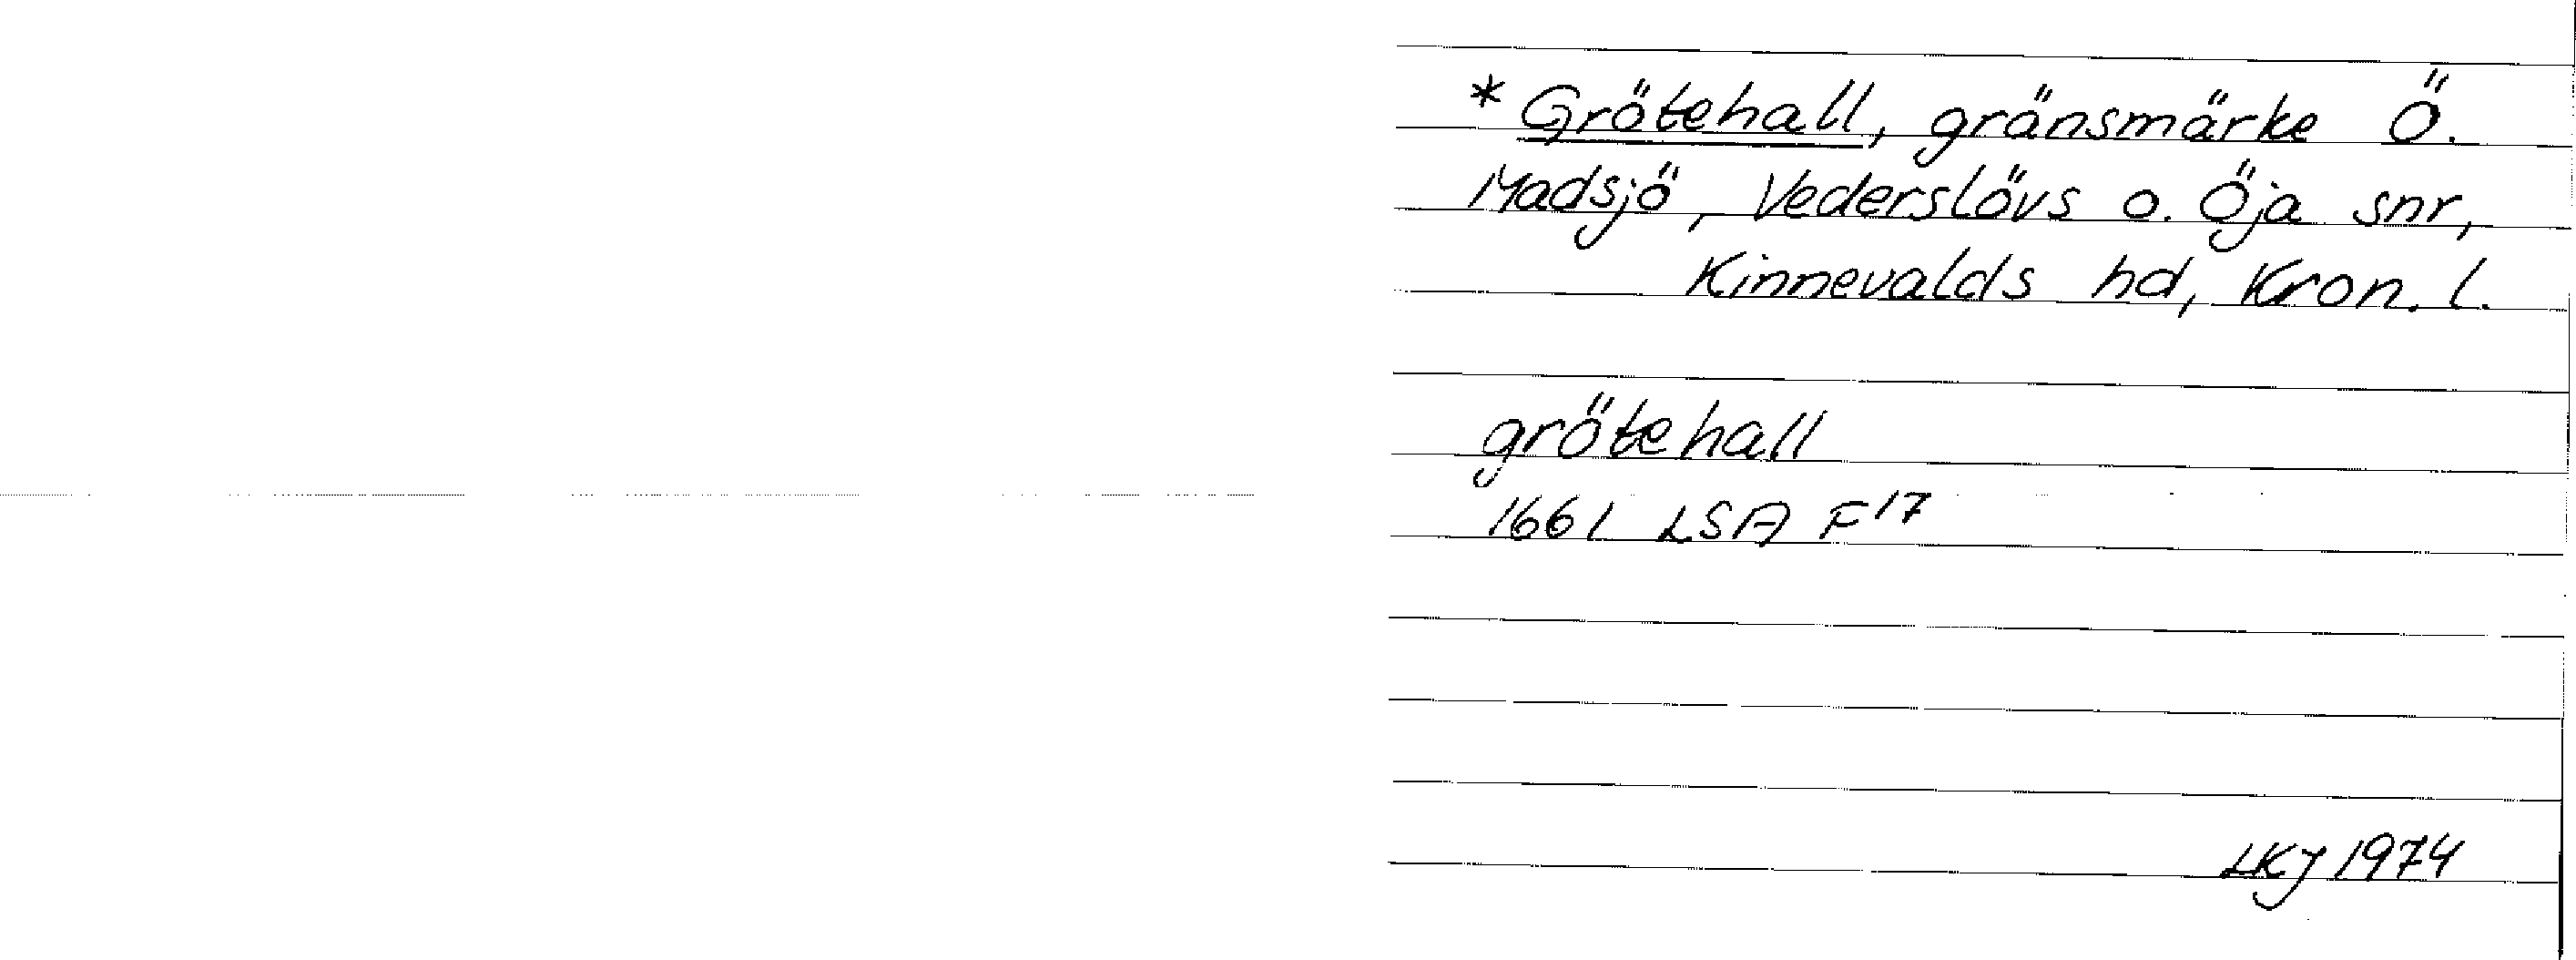 * Grötehall, gränsmärke Ö.
Madsjö, Vederslövs o. Öja snr,
Kinnevalds hd, Kron. l.
grötehall
1661 LSA F17
LKJ 1974